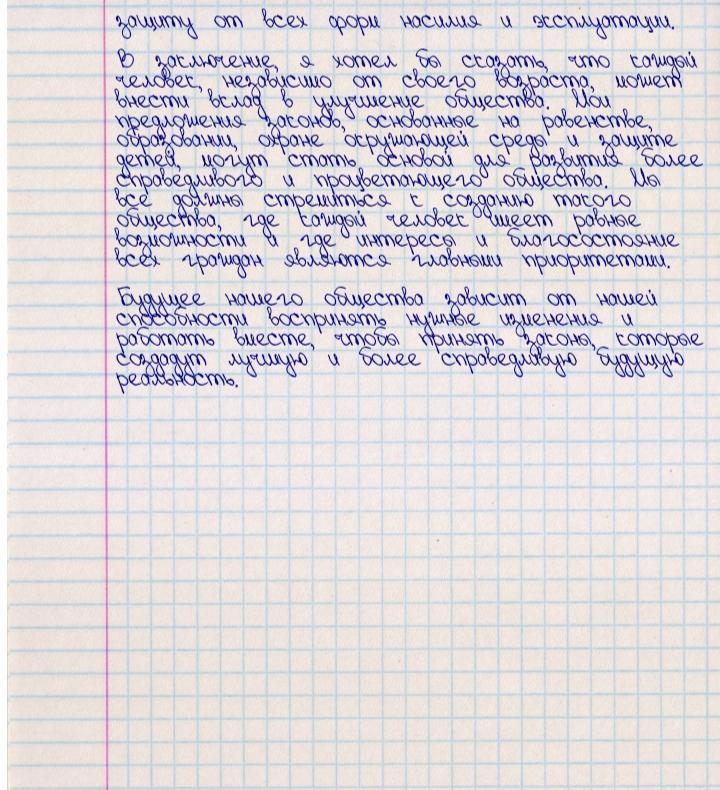 защиту от всех форм насилия и эксплуатации.
В заключение, я хотел бы сказать, что каждый
человек, независимо от своего возраста, может
внести вклад в улучшение общества. Мои
предложения законов, основанные на равенстве,
образовании, охране окружающей среды и защите
детей, могут стать основой для развития более
справедливого и процветающего общества. Мы
все должны стремиться к созданию такого
общества, где каждый человек имеет равные
возможности и где интересы и благосостояние
всех граждан являются главными приоритетами.
Будущее нашего общества зависит от нашей
способности воспринять нужные изменения и
работать вместе, чтобы принять законы, которые
создадут лучшую и более справедливую будущую
реальность.